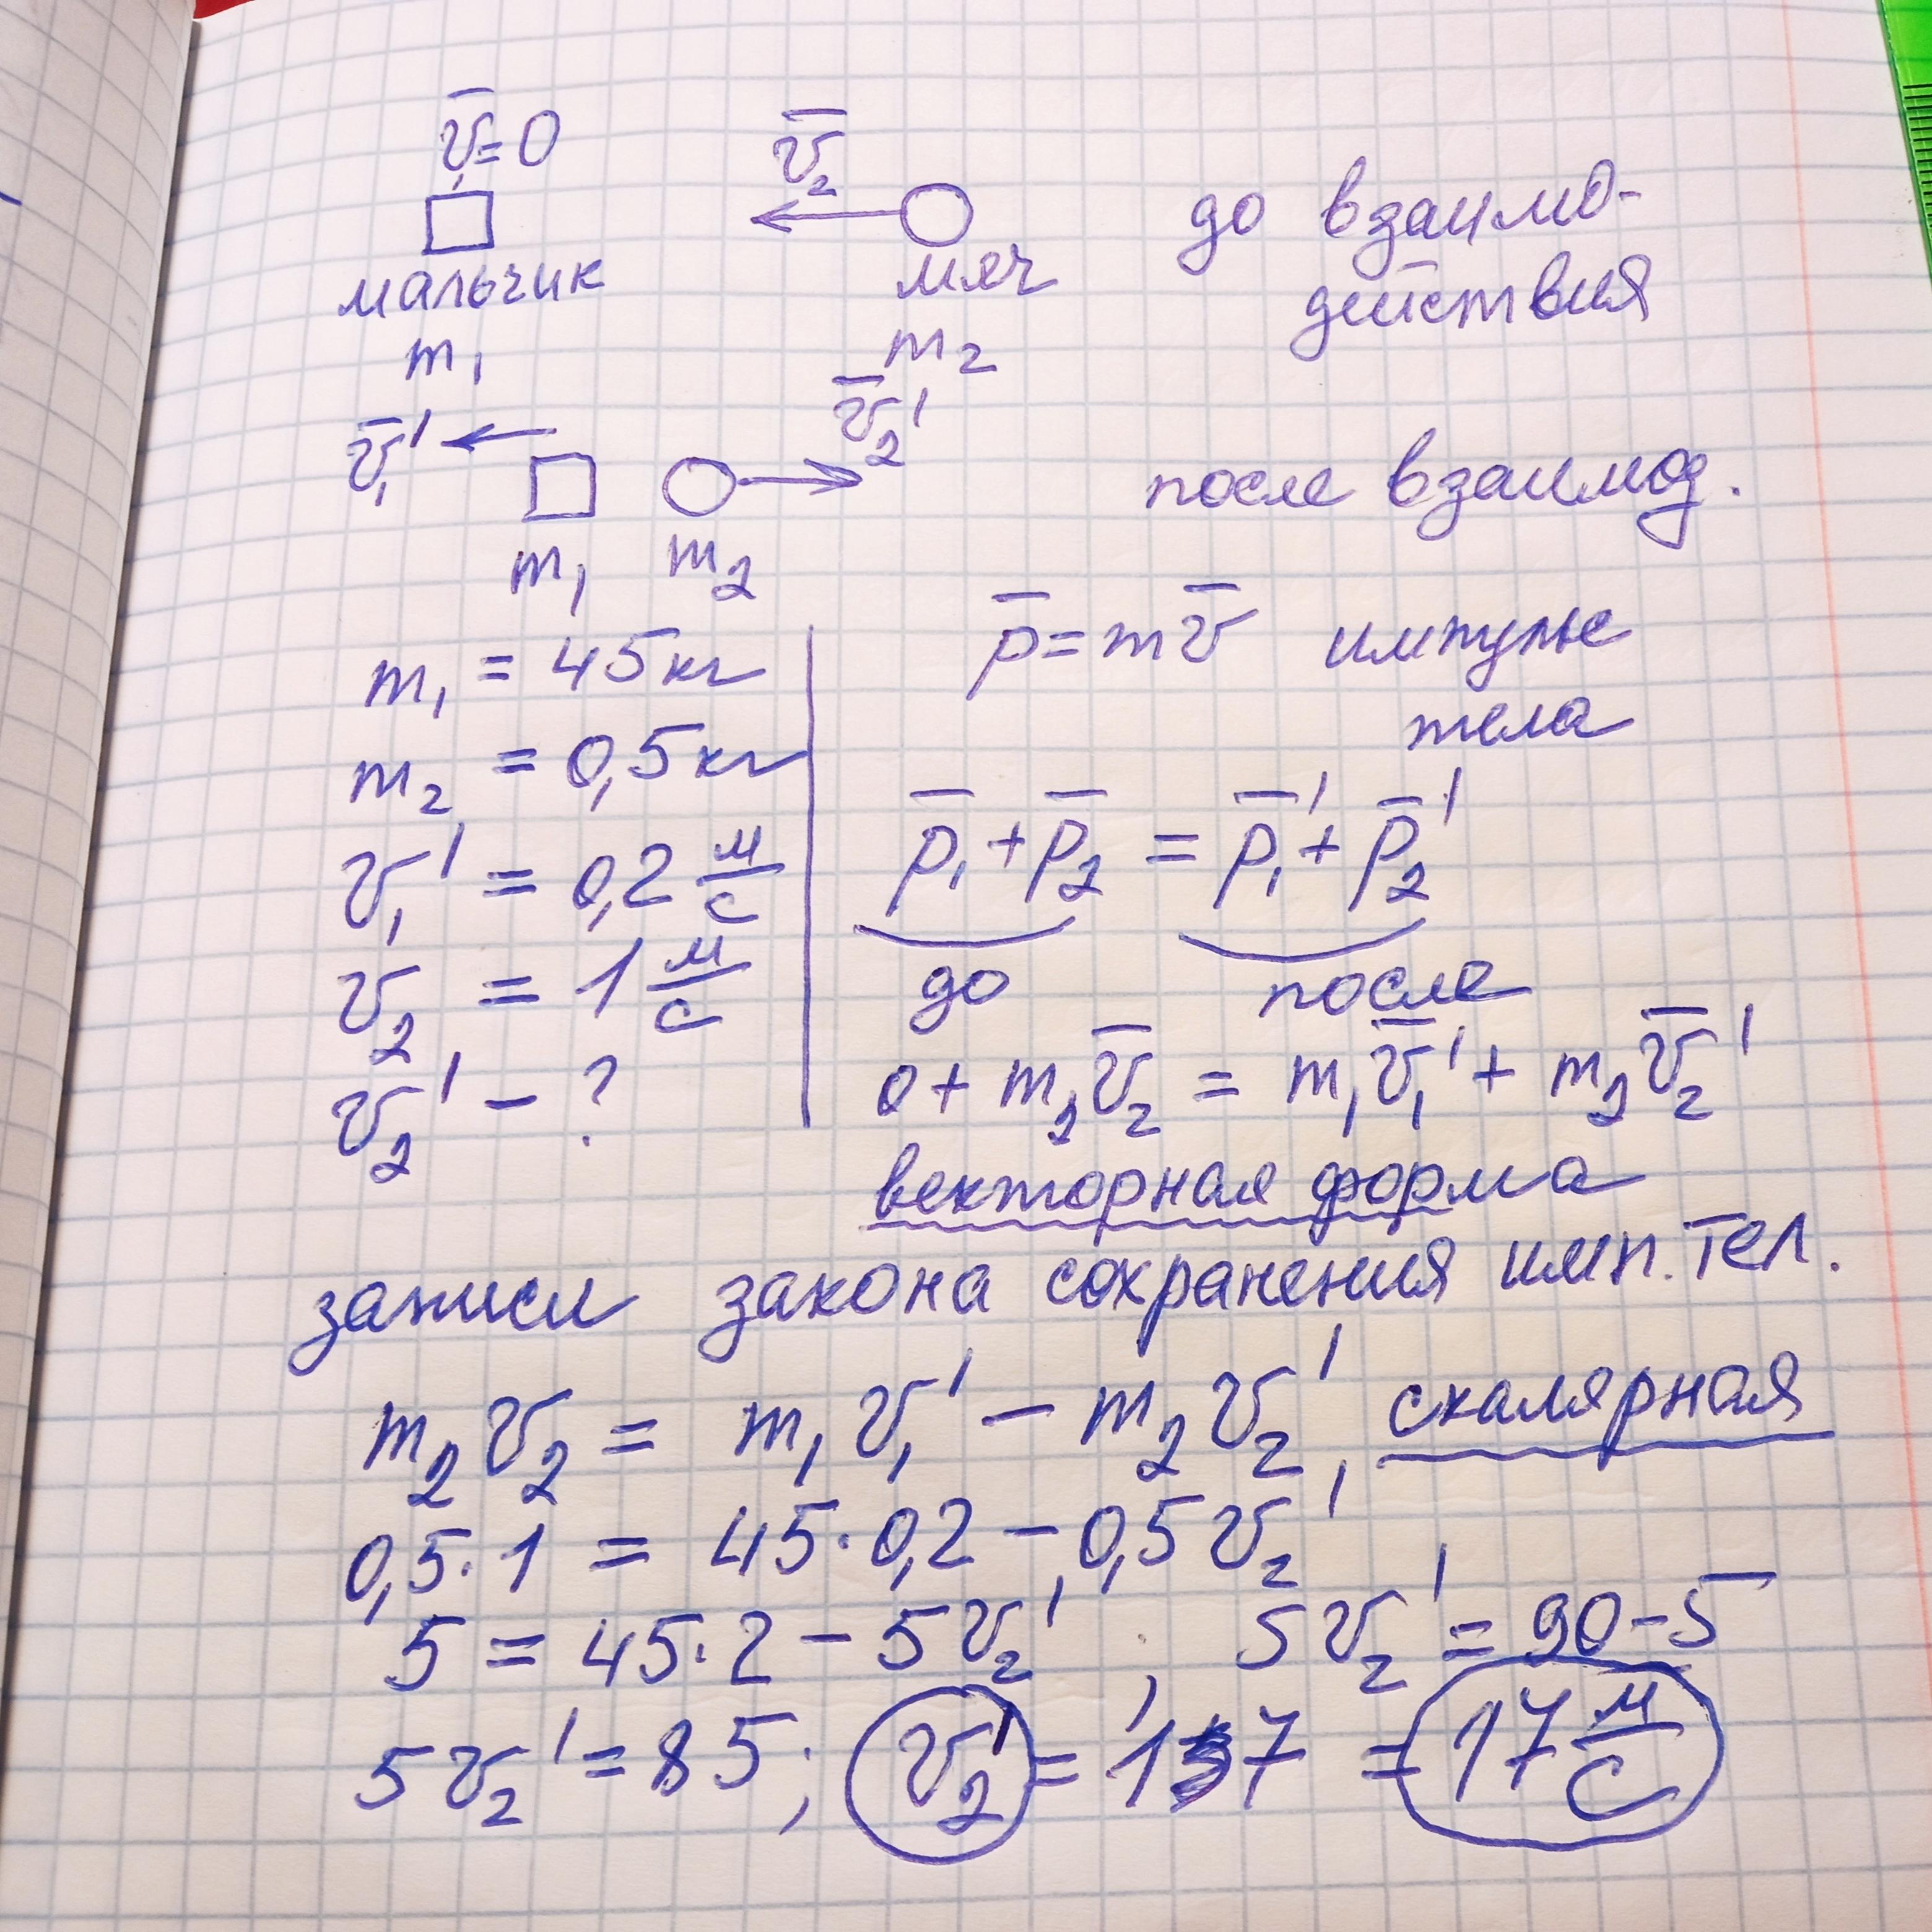 v̅=0 v̅₂ до взаимо-
мальчик мяч действия
m₁ m₂
v̅₁' v̅₂' после взаимод.
m₁ m₂
m₁ = 45 кг
m₂ = 0,5 кг
v₁' = 0,2 м/с
v₂ = 1 м/с
v₂' - ?
p̅ = mv̅ импульс
тела
p̅₁ + p̅₂ = p̅₁' + p̅₂'
до после
0 + m₂v̅₂ = m₁v̅₁' + m₂v̅₂'
векторная форма
записи закона сохранения имп. тел.
m₂v₂ = m₁v₁' - m₂v₂', скалярная
0,5·1 = 45·0,2 - 0,5v₂'
5 = 45·2 - 5v₂', 5v₂' = 90-5
5v₂' = 85; v₂' = 17 = 17 м/с